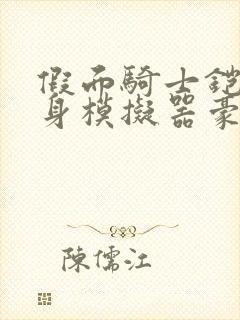 假而騎士鎧
身模擬器豪
陳儒江